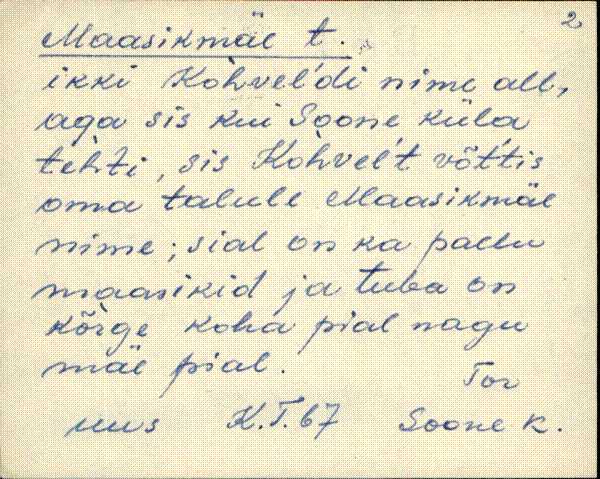 2
Maasikmäe t.
ikki Kohvel'di nime all,
aga sis kui Soone küla
tehti, sis Kohvel't võt'tis
oma talule Maasikmäe
nime; sial on ka pallu
maasikid ja tuba on
kõrge koha pial nagu
mäe pial.
Tor
uus K.T.67 Soone k.